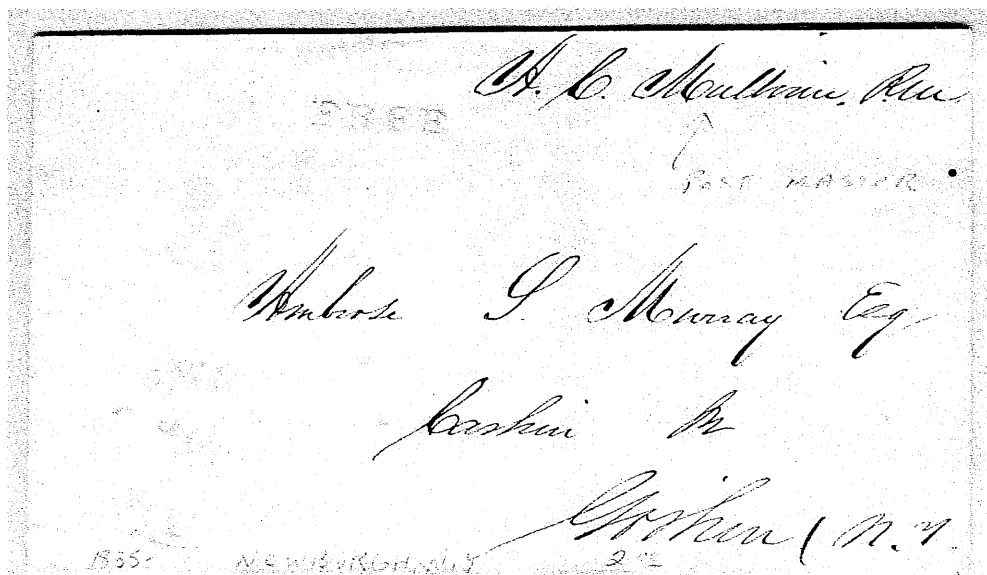 A. C. Mullinnix, P.M.
FREE
POST MASTER
Ambrose S. Murray Esq
Cashier
Goshen N.Y.
1835 NEWBURGH, N.Y. 2